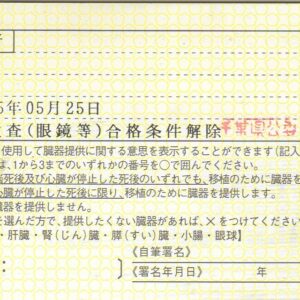 5年05月25日
査(眼鏡等)合格条件解除
千葉県公
使用して臓器提供に関する意思を表示することができます(記入
は、1から3までのいずれかの番号を○で囲んでください。
死後及び心臓が停止した死後のいずれでも、移植のために臓器を
臓が停止した死後に限り、移植のために臓器を提供します。
器を提供しません。
を選んだ方で、提供したくない臓器があれば、×をつけてください。
・肝臓・腎(じん)臓・膵(すい)臓・小腸・眼球】
《自筆署名》
《署名年月日》 年